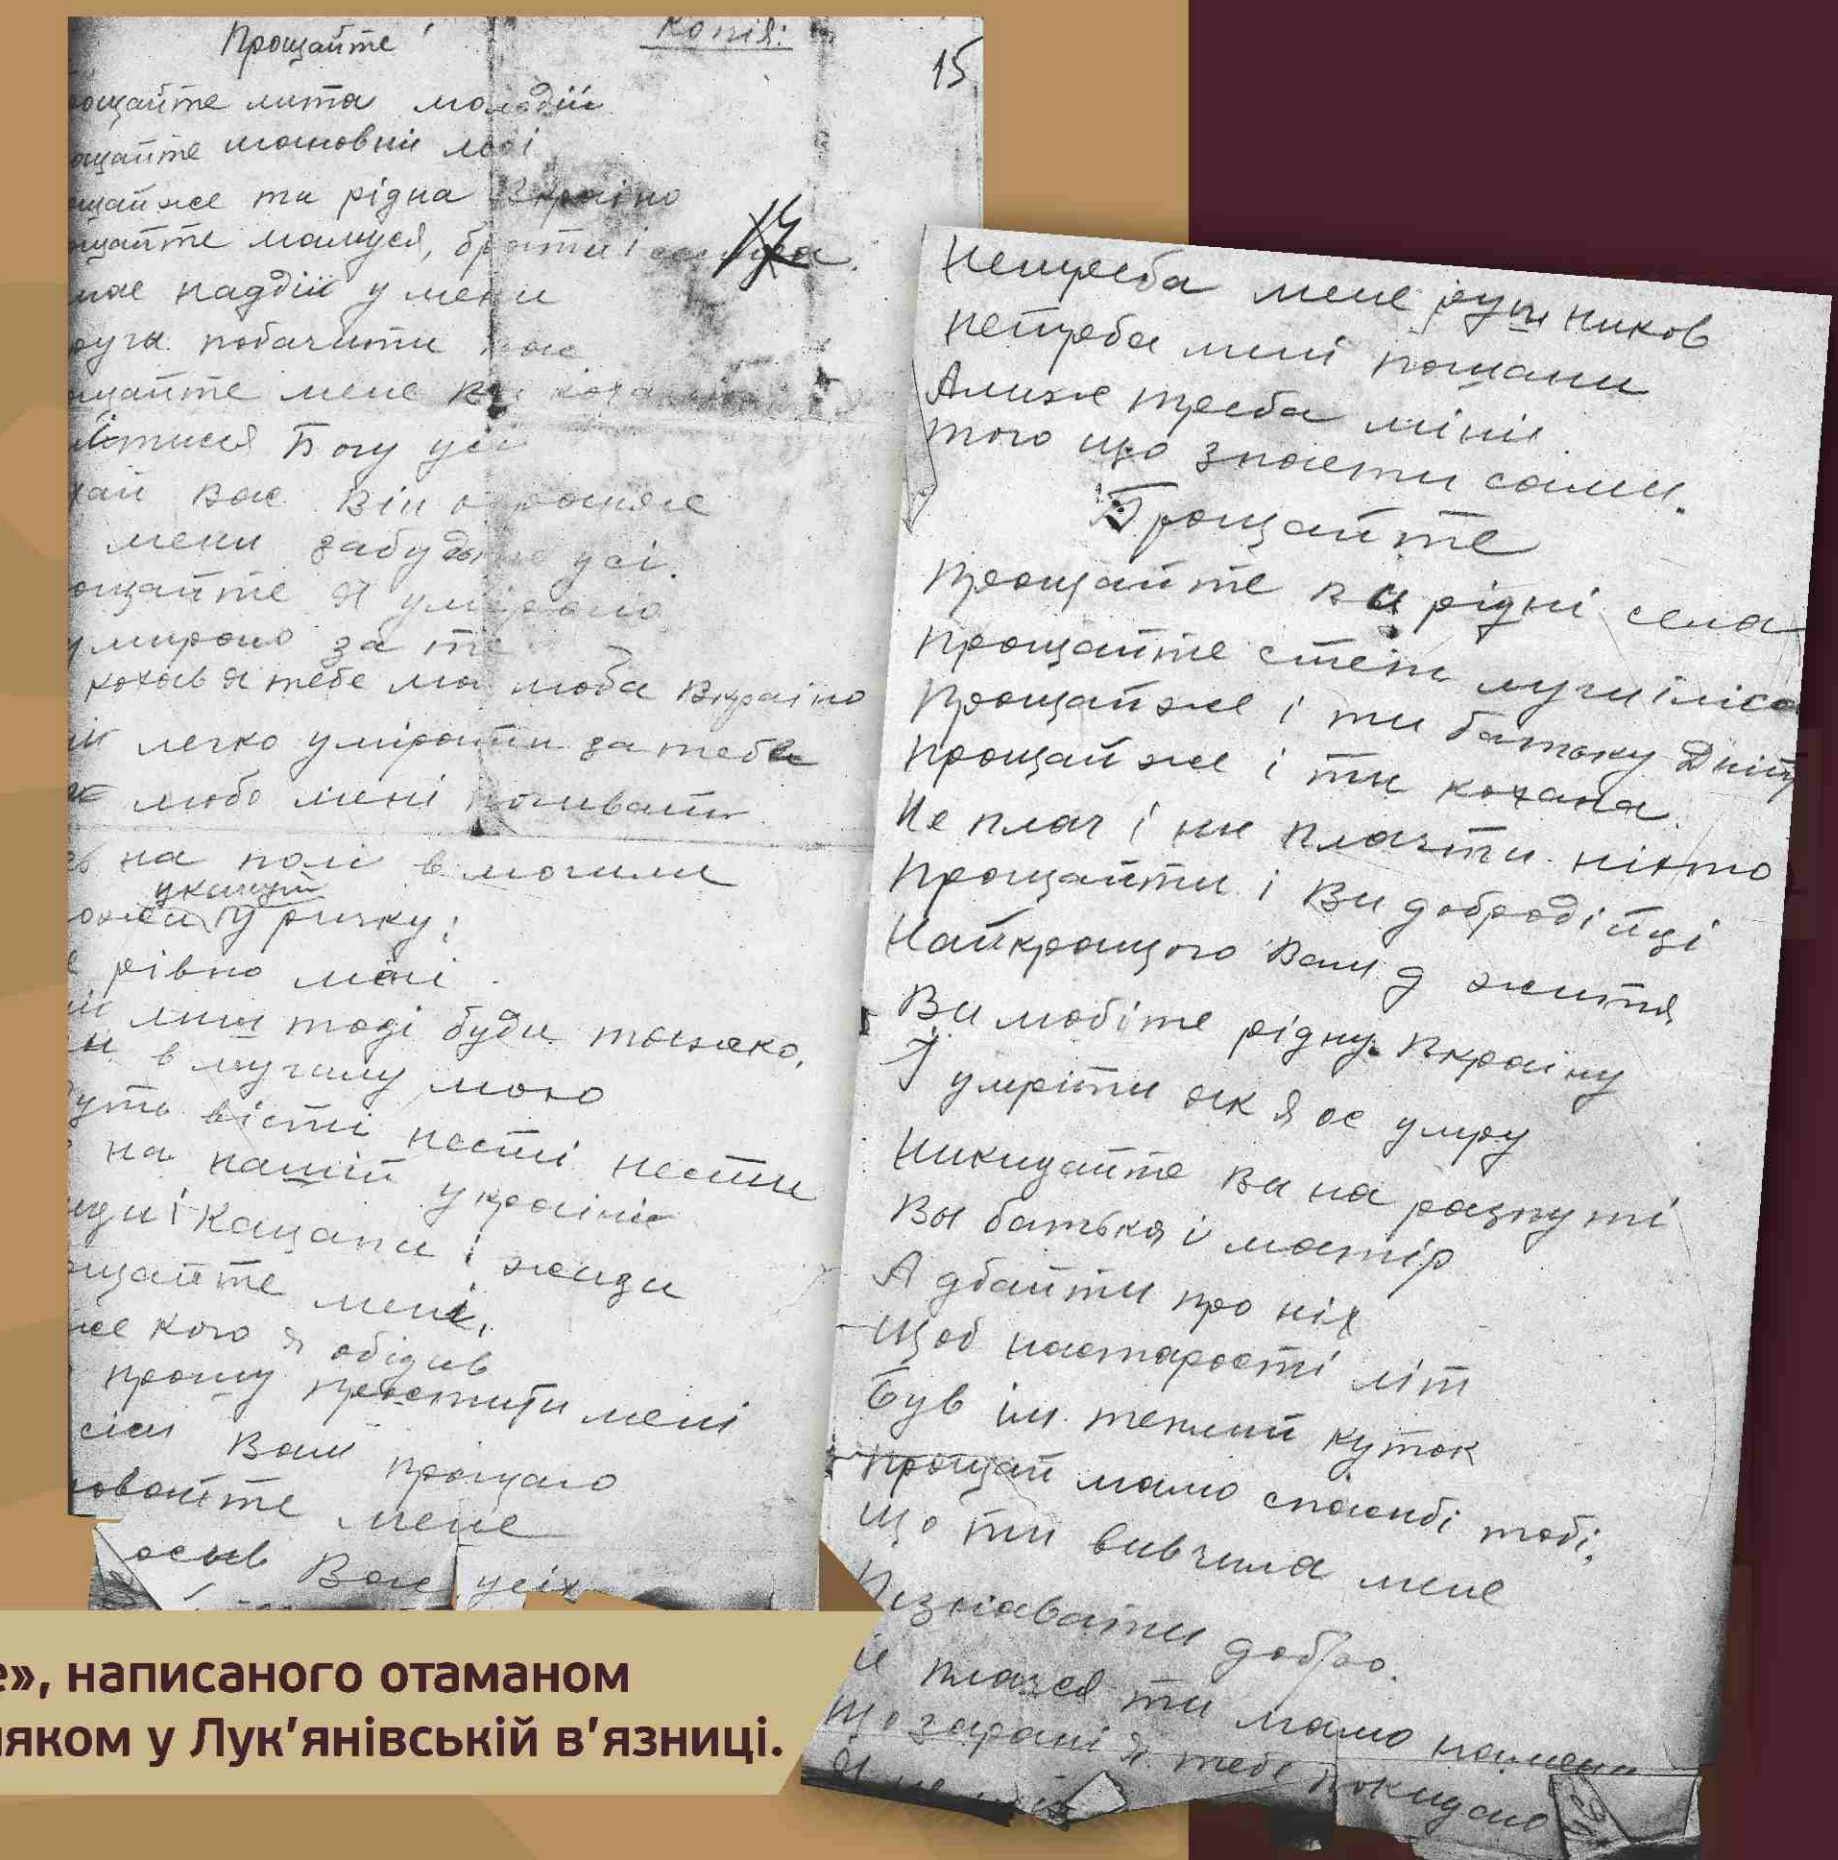 Прощайте
Копія:
15
ощайте лита молодії
ощайте мої
щайже ти рідна Вкраіно
щайте мамуся, брати і
має надзіи у мени
побачити вас
щайте мене
Богу усі
хай вас він
мени забудьте усі.
ощайте я умираю
умираю за те
кохав я тебе моя люба Вкраіно
легко умірати за тебе
любо мені почивати
на полі в могили
укинут
у ричку;
рівно мені.
лиш тоді буди тяжко,
в мугилу мою
будуть вісти нести
на нашій украіни
і Кацапи і жиди
ощайте мені,
кого я обідив
прошу простити мені
Вам прощаю
мене
Вас усіх
Нетреба мене рушников
нетреба мені пошани
Алиже треба міни
того що знаети сами.
Прощайте
Прощайте ви рідні села
Прощайте степи луги і ліса
Прощайже і ти батьку Дніпр
Прощай же і ти кохана.
Не плач і ни плачти ніхто
Прощайти і Ви добродійці
Найкращого Вам д життя
Ви любіте рідну Вкраіну
І умріти як я ос умру
Никидайте Ви на разпуті
Вы батька і матір
А дбайти про ніх
Щоб настарості літ
Був ім теплий куток
Прощай мамо спасибі тобі,
Що ти вивчила мене
Пизнавати добро.
плачся ти мамо намени
Що зарані я тебе покидаю
Я не
е», написаного отаманом
яком у Лук’янівській в’язниці.